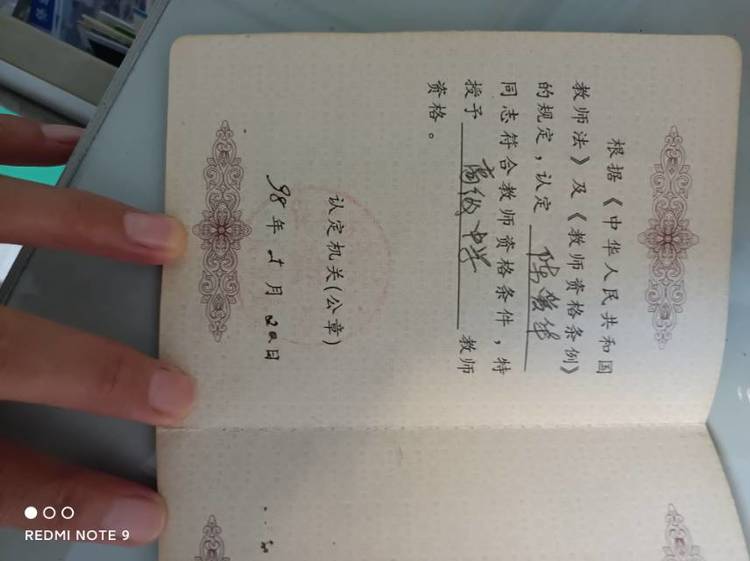 根据《中华人民共和国
教师法》及《教师资格条例》
的规定，认定
同志符合教师资格条件，特
授予 高级中学 教师
资格。
认定机关(公章)
98年5月20日
REDMI NOTE 9